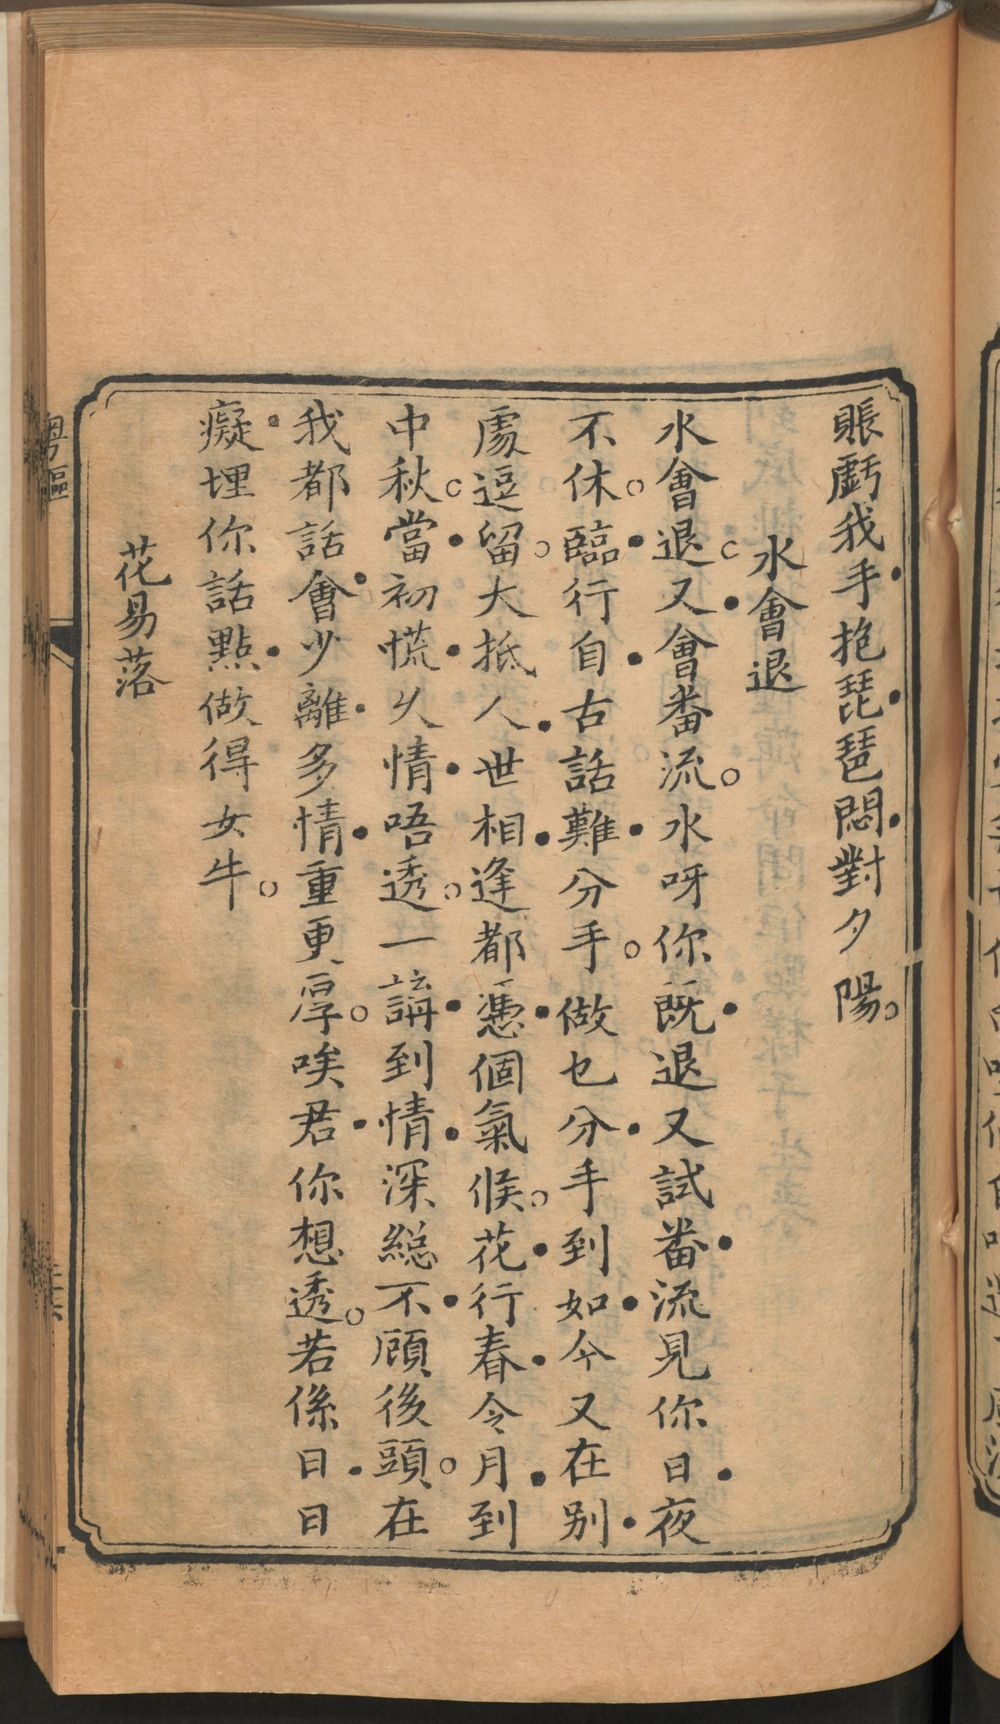 賬虧我手抱琵琶悶對夕陽。
水會退
水會退又會番流。水呀你既退又試番流見你日夜
不休。臨行自古話難分手。做乜分手到如今又在別
處逗留。大抵人世相逢都憑個氣候。花行春令月到
中秋。當初慌久情唔透。一講到情深總不顧後頭。在
我都話會少離多情重更厚。唉君你想透。若係日日
癡埋你話點做得女牛。
花易落
粵謳